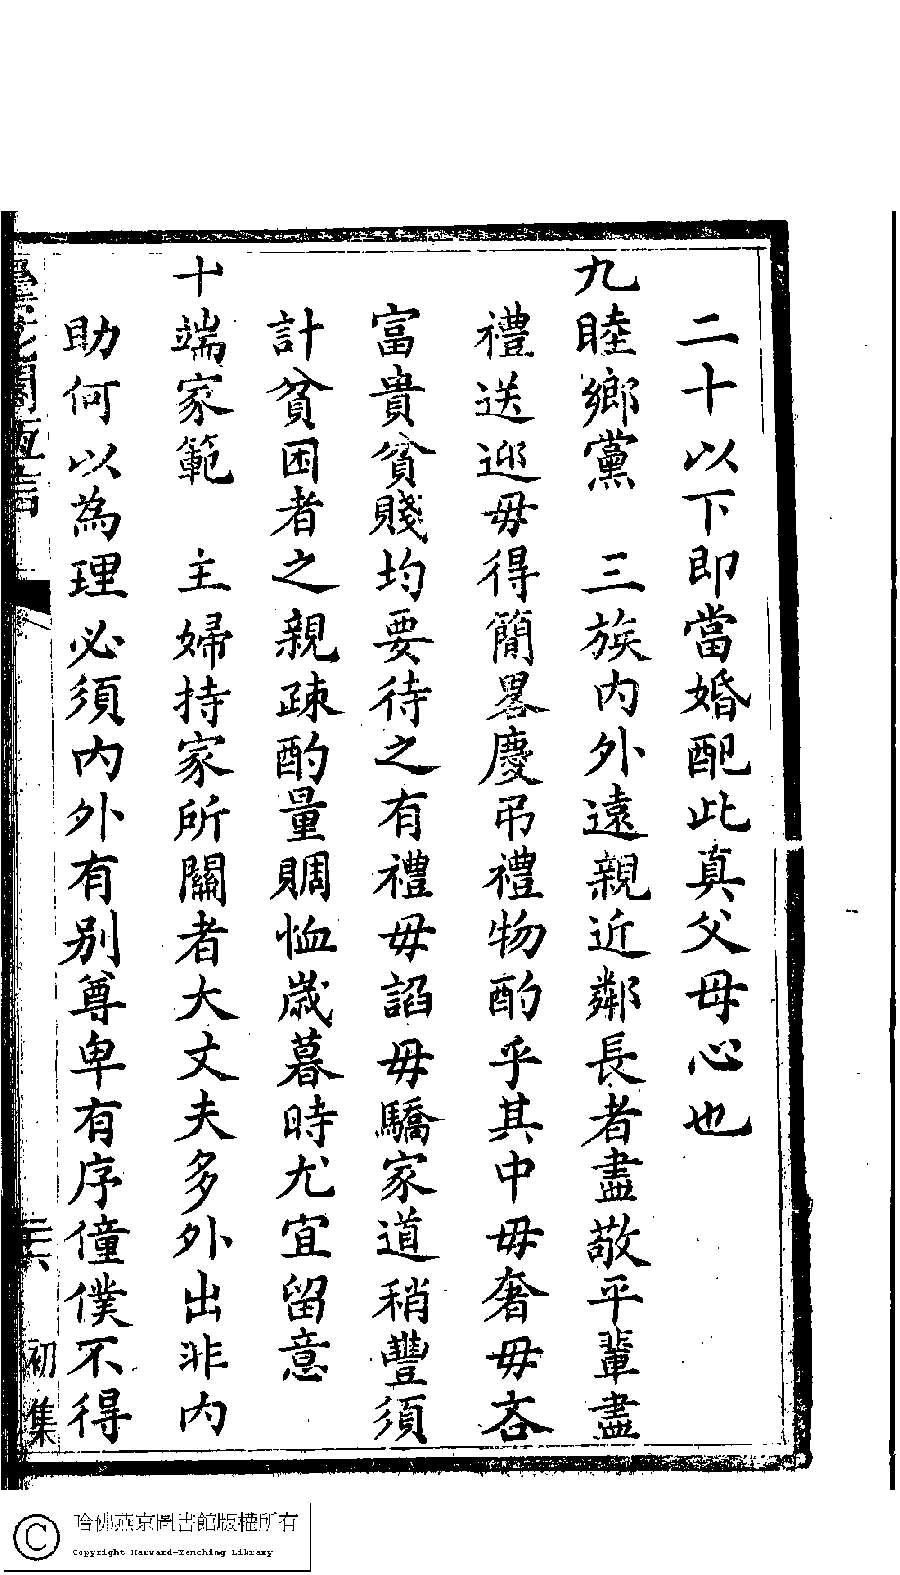 二十以下即當婚配此真父母心也
九睦鄉黨　三族内外遠親近鄰長者盡敬平輩盡
禮送迎毋得簡畧慶弔禮物酌乎其中毋奢毋吝
富貴貧賤均要待之有禮毋諂毋驕家道稍豐須
計貧困者之親疎酌量賙恤歲暮時尤宜留意
十端家範　主婦持家所關者大丈夫多外出非内
助何以為理必須内外有别尊卑有序僮僕不得
初集
哈佛燕京圖書館版權所有
Copyright Harvard-Yenching Library